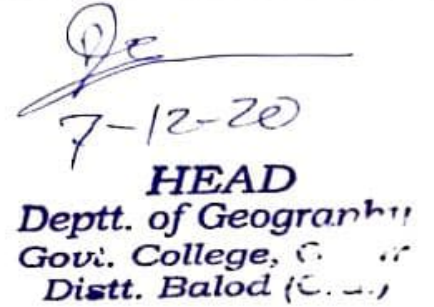 7-12-20
HEAD
Deptt. of Geography
Govt. College,
Distt. Balod